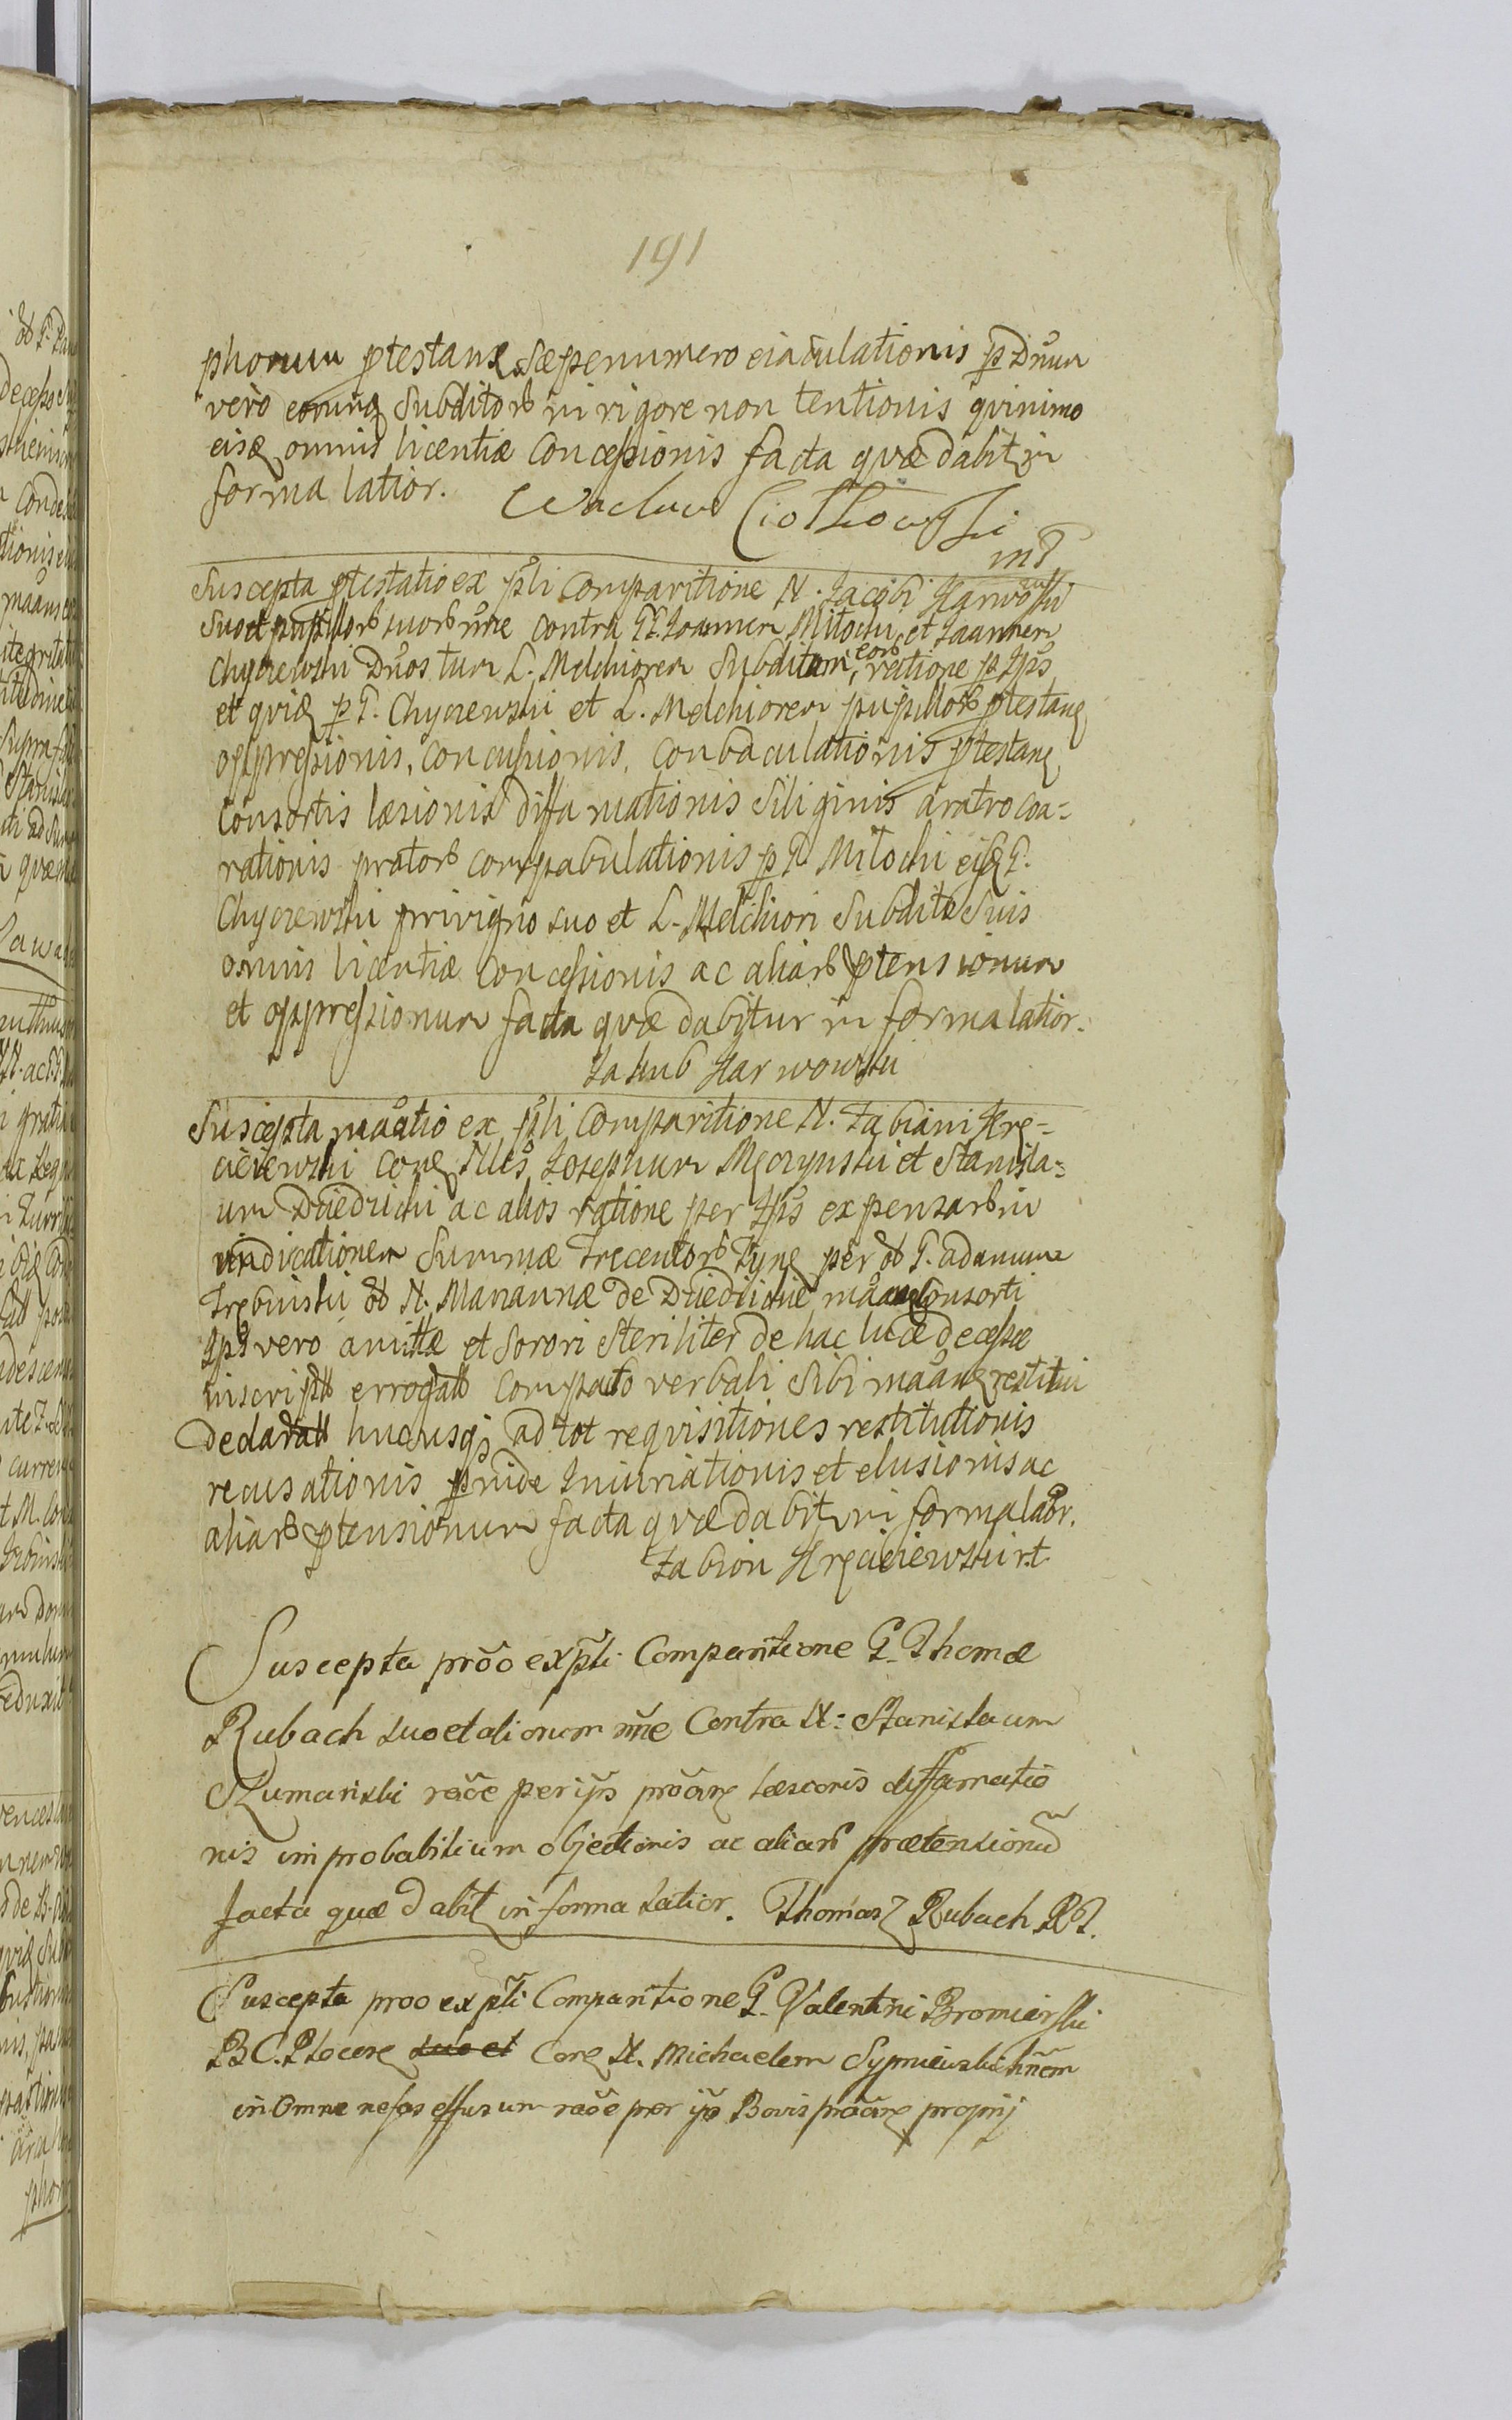 191
phorum ptestans sæpenumero eiaculationis p Dnum
vero eorumq subditorb in rigore non tentionis qvinimo
eisq omnis licentiæ concessionis facta qvæ dabitr in
forma latior. Wacław Ciołkowski
mp
Suscepta ptestatio ex psti comparitione N. Jacobi Harwowski
suo et pupillorb suorb nne contra GG. Joannem Mitochi et Joannem
Chyczewski Dnos tum L. Melchiorem subditum eorb, ratione p Ips
et qvidq p G. Chyczewski et L. Melchiorem pupillorb ptestang
oppressionis, concussionis, conbaculationis ptestang
consortis læsionis diffamationis siliginis aratro coa=
rationis pratorb compabulationis p G. Mitochi eisq G.
Chyczewski privigno suo et L. Melchiori subditæ suis
omnis licentiæ concessionis ac aliarb ptensionum
et oppressionum facta qvæ dabitur in forma latior.
Jakub Harwowski
Suscepta maatio ex psti comparitione N. Fabiani Krę=
ciewski conq Nles Josephum Męczynski et Stanisla=
um Dziedzicki ac alios ratione per Ips expensarb in
vindicationem summæ trecentorb Tynq per ob G. Adamum
Trębinski ob N. Mariannæ de Dziedzickie maang consorti
Ips vero amittæ et sorori steriliter de hac luce decessæ
inscript errogatb compacto verbali sibi maang restitui
declaratb hucusqs ad tot reqvisitiones restitutionis
recusationis pnide iniuriationis et elusionis ac
aliarb ptensionum facta qvæ dabitr in forma laor.
Fabion Kręciciewski rt
Suscepta proo ex psti Comparitione G. Thomæ
Rubach suo et aliorum nne Contra N: Stanislaum
Szumanski raoe per ips proang læsionis diffamatio
nis improbabilium objectionis ac aliarb prætensionu
facta quæ dabitr in forma latior. Thomasz Rubach RT.
Suscepta proo ex psti Comparitione G. Valentini Bromierski
B.C. Plocen suo et Conq N. Michaelem Sypniewski hnem
in Omne nefas effusum raoe per ips Bovis proang proprij